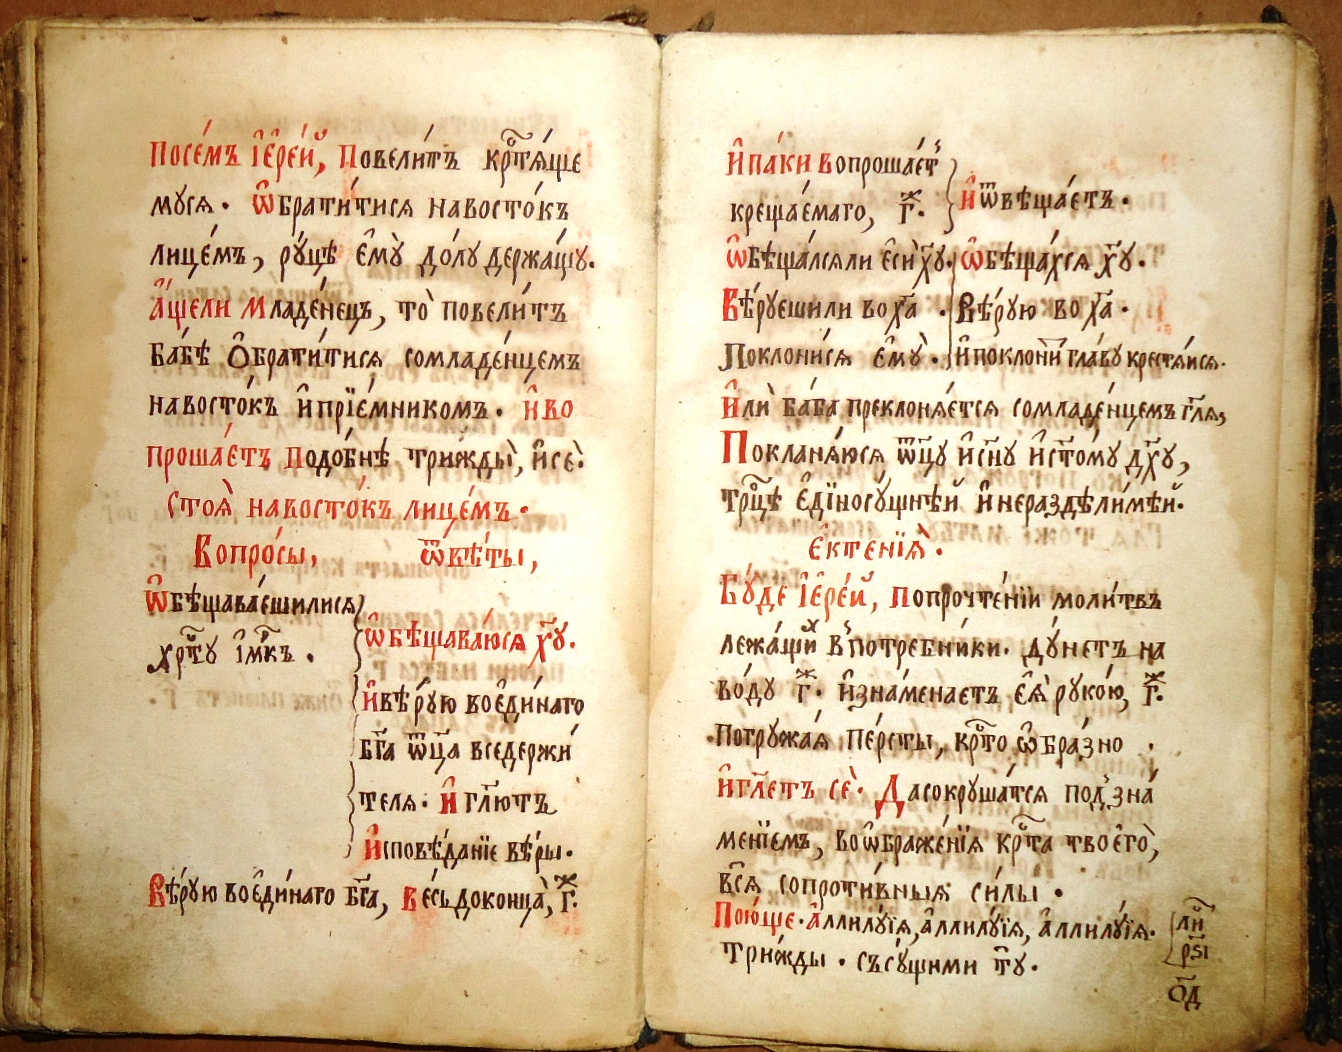 Посе́мъ і҆ере́й, Повели́тъ кр҃тѧ́ще
мусѧ. Ѡ҆брати́тисѧ навосто́къ
лице́мъ, ру́цѣ є҆му̀ до́лу держа́щу.
А҆́щели младе́нецъ, то̀ повели́тъ
ба́бѣ О҆брати́тисѧ сомладе́нцемъ
навосто́къ и҆прїе́мникомъ. И҆во
проша́етъ подо́бнѣ три́жды̀, и҆сѐ.
Стоѧ̀ навосто́къ лице́мъ.
Вопро́сы, ѿвѣ́ты,
Ѡ҆бѣщава́ешилисѧ
хр҃ту і҆м҃къ.
Ѡ҆бѣщава́юсѧ х҃у.
И҆вѣ́рую воє҆ди́наго
бг҃а ѿц҃а вседержи́
телѧ. И҆ гл҃ютъ
И҆сповѣ́данїе вѣ́ры.
Вѣ́рую воє҆ди́наго бг҃а, ве́сь доконца̀, г҃ж.
И҆па́ки вопроша́етъ
креща́емаго, г҃ж.
И҆ ѿвѣща́етъ.
Ѡ҆бѣща́лсѧли є҆сѝ х҃у.
Ѡ҆бѣща́хсѧ х҃у.
Вѣ́руешили во х҃а.
Вѣ́рую во х҃а.
Поклони́сѧ є҆му̀.
И҆поклони́й главу̀ крестѧ́исѧ.
И҆лѝ ба́ба преклонѧ́етсѧ сомладе́нцемъ гл҃ѧ,
Покланѧ́юсѧ ѿц҃у и҆сн҃у и҆ст҃о́му дх҃у,
тр҃цѣ є҆дїносу́щнѣй и҆нераздѣли́мѣй.
є҆ктенїѧ̀.
Бу́де і҆ере́й, попрочте́нїи моли́твъ
лежа́щихъ в̾потребни́ки. ду́нетъ на
во́ду г҃ж. и҆зна́менаетъ є҆ѧ̀ руко́ю, г҃ж.
Погружа́ѧ пе́рсты, кр҃то ѡ҆бра́зно
И҆гл҃етъ сѐ. Дасокруша́тсѧ под̾зна́
менїемъ, воѡ҆браже́нїѧ кр҃та твоегѡ̀,
всѧ̀ сопроти́вныѧ си́лы.
Пою́ще. А҆ллилу́їѧ, а҆ллилу́їѧ, а҆ллилу́їѧ.
три́жды. съсу́щими ту̀.
ли҃
рѕ҃і
о҃д